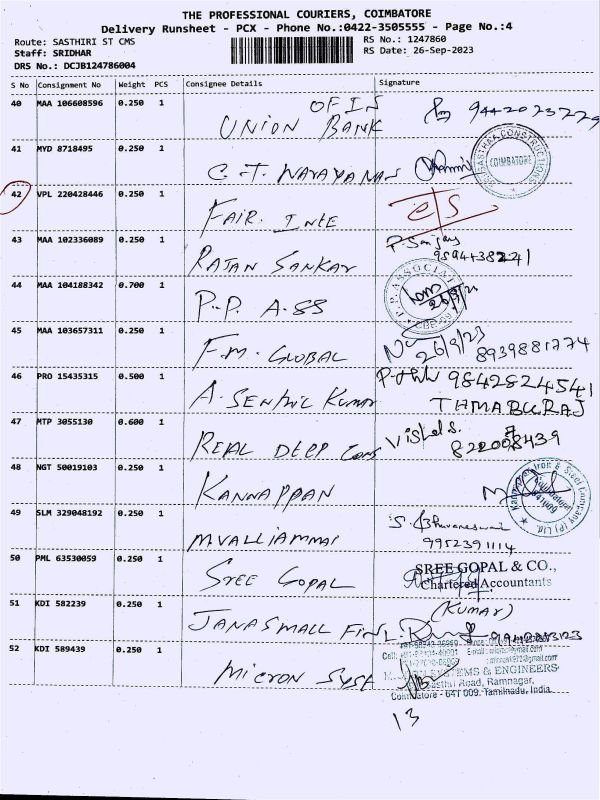 THE PROFESSIONAL COURIERS, COIMBATORE
Delivery Runsheet - PCX - Phone No.:0422-3505555 - Page No.:4
Route: SASTHIRI ST CMS
RS No.: 1247860
Staff: SRIDHAR
RS Date: 26-Sep-2023
DRS No.: DCJB124786004
S No Consignment No Weight PCS Consignee Details Signature
40 MAA 106608596 0.250 1 OF IS
UNION BANK
41 MYD 8718495 0.250 1 C.T. NARAYANAN
SASTHAA CONSTRUCTIONS
COIMBATORE
42 VPL 220428446 0.250 1 FAIR. INTE
43 MAA 102336089 0.250 1 RAJAN SANKAR
P. Sanjay
44 MAA 104188342 0.700 1 P.P. A.SS
P.P. ASSOCIATES
45 MAA 103657311 0.250 1 F.M. GLOBAL
26/9/23
8939881774
46 PRO 15435315 0.500 1 A. SENTHIL KUMAR
9842824541
47 MTP 3055130 0.600 1 REAL DEEP CONS
Vishal S.
48 NGT 50019103 0.250 1 KANNAPPAN
Kannappan Iron & Steel Company (P) Ltd.
49 SLM 329048192 0.250 1 M.VALLIAMMAI
S. Bhuvaneswari
9952391114
50 PML 63530059 0.250 1 SREE GOPAL
SREE GOPAL & CO.,
Chartered Accountants
(KUMAR)
51 KDI 582239 0.250 1 JANASMALL FIN
52 KDI 589439 0.250 1 MICRON SYST
SYSTEMS & ENGINEERS
Sasthri Road, Ramnagar,
Coimbatore - 641 009. Tamilnadu, India.
13